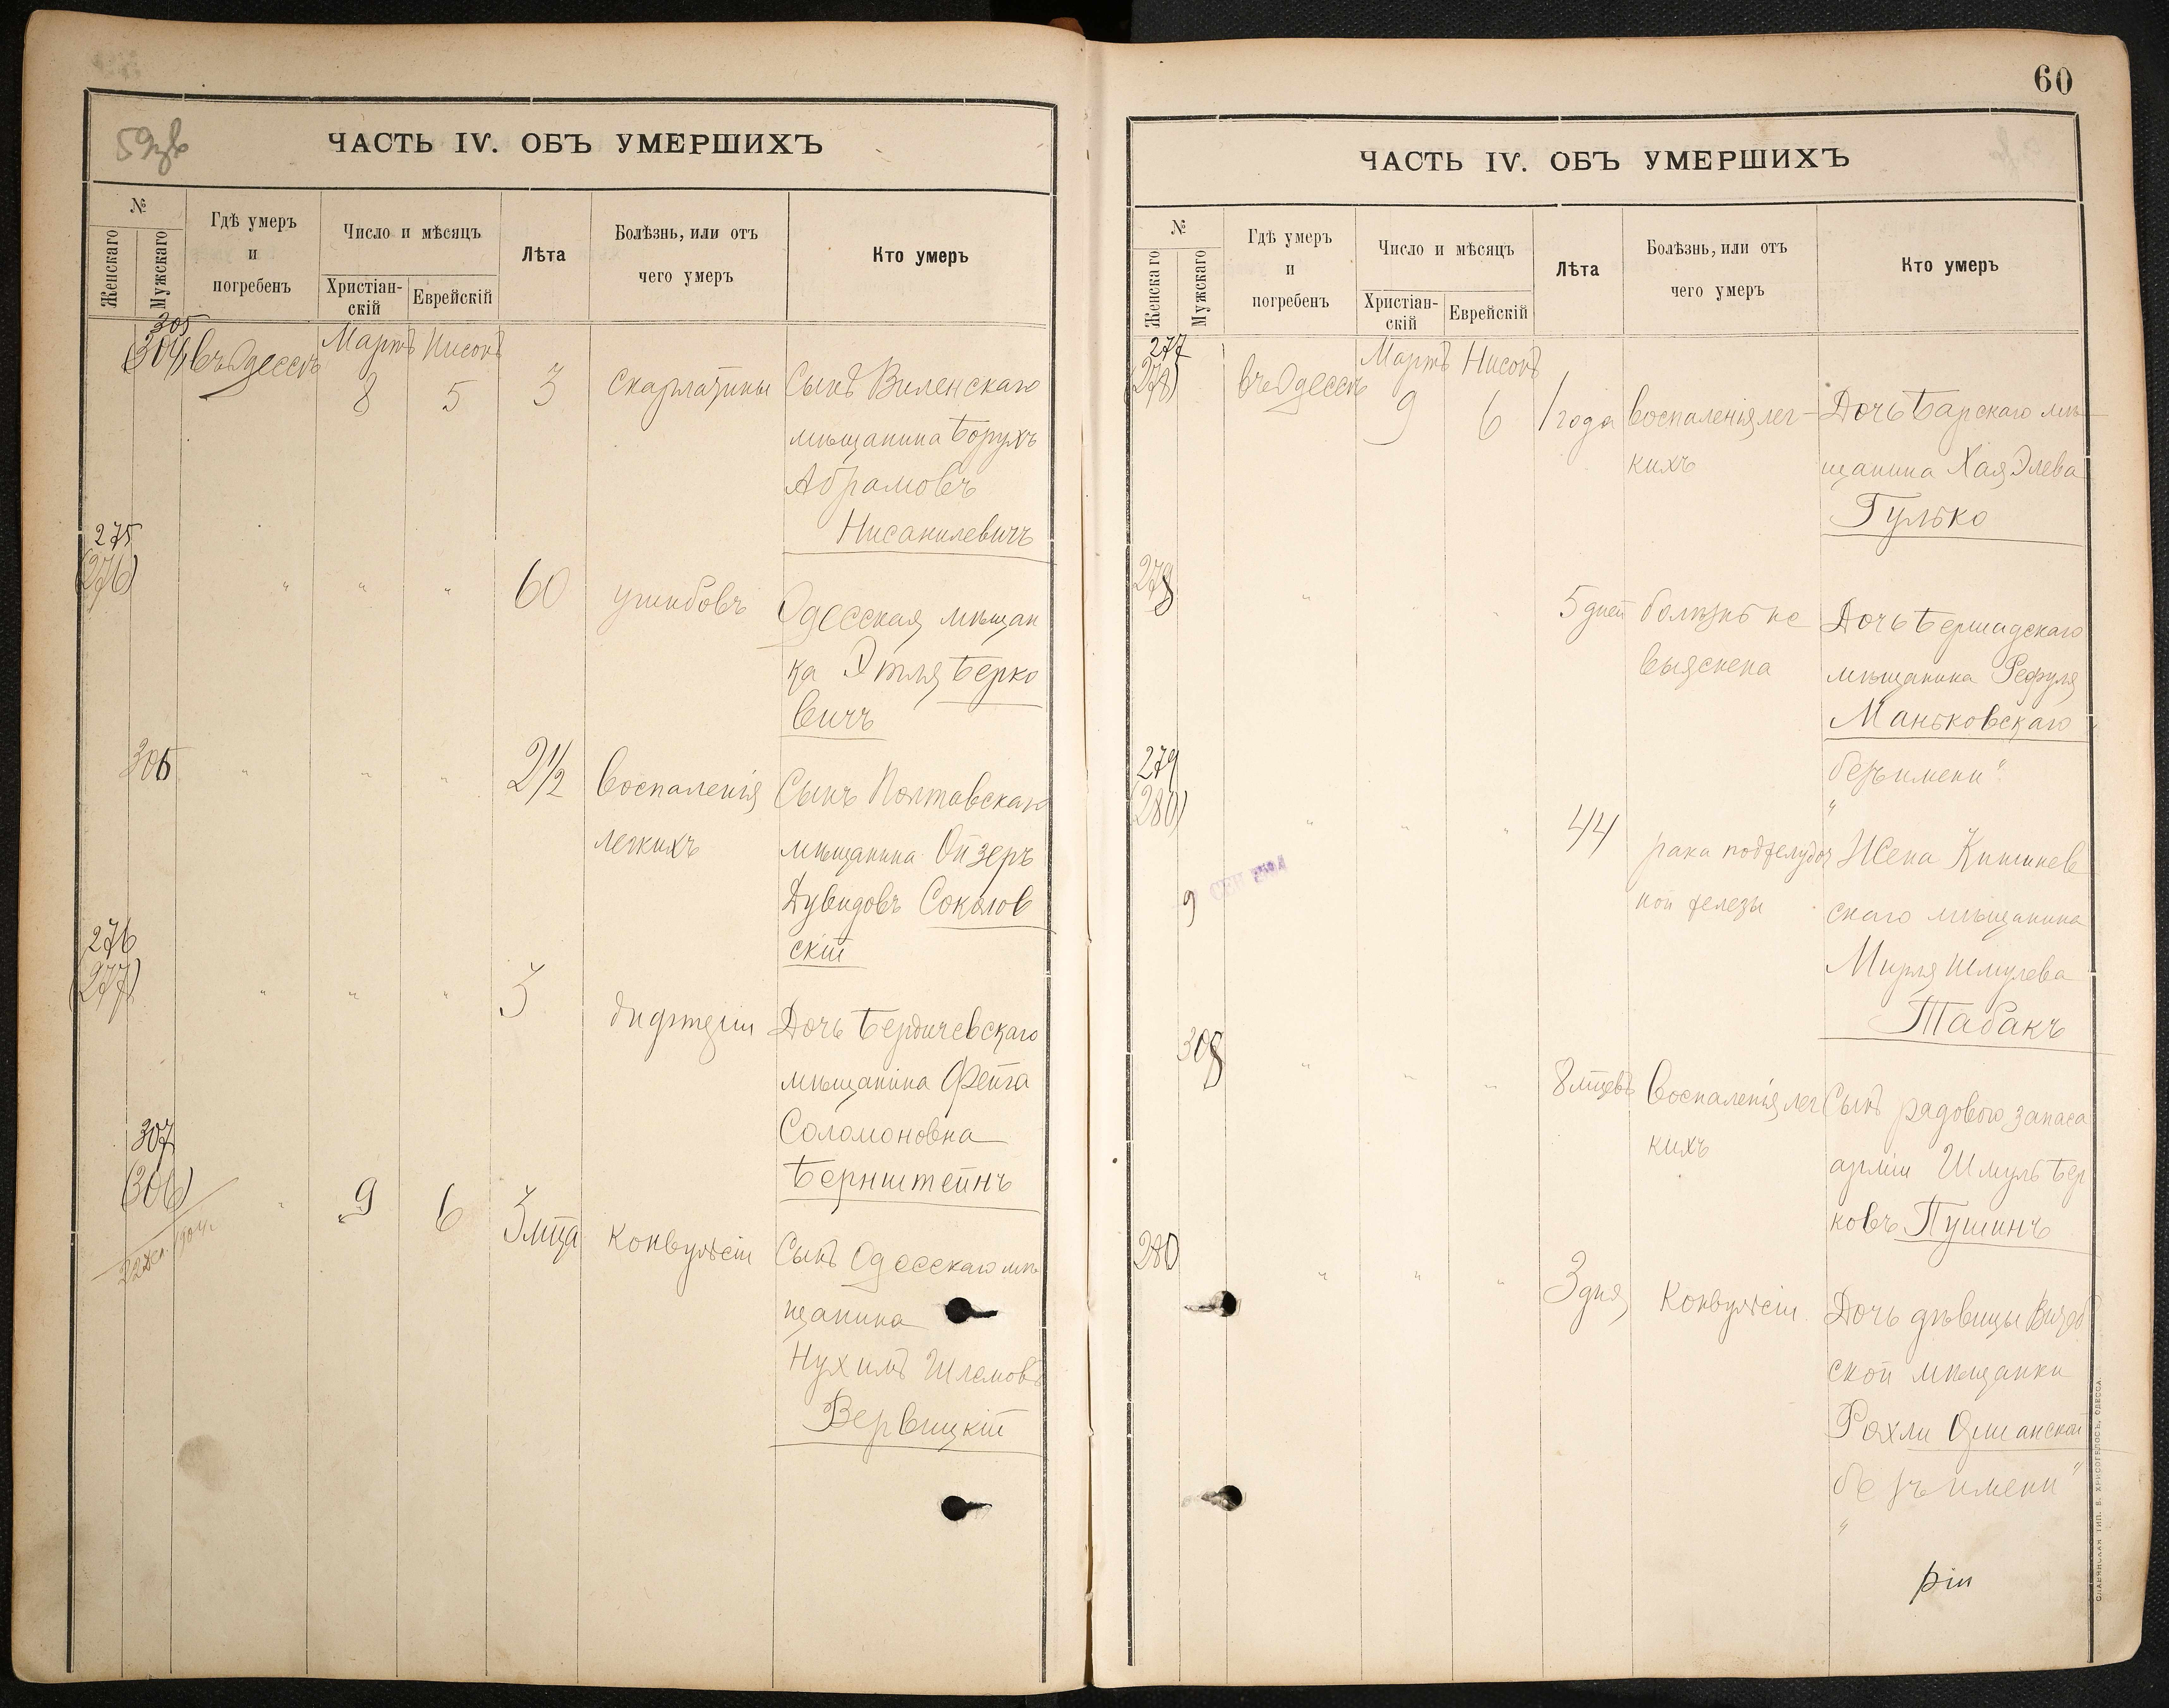 59зв
ЧАСТЬ IV. ОБЪ УМЕРШИХЪ
№
Женскаго
Мужскаго
Гдѣ умеръ
и
погребенъ
Число и мѣсяцъ
Христіан-
скій
Еврейскій
Лѣта
Болѣзнь, или отъ
чего умеръ
Кто умеръ
305
(304)
въ Одессѣ
Мартъ
Нисонъ
8
5
3
скарлатины
Сынъ Виленскаго
мѣщанина Борухъ
Абрамовъ
Нисанилевичъ
275
(276)
"
"
"
60
ушибовъ
Одесская мѣщан
ка Этля Берко
вичъ
306
"
"
"
2 1/2
Воспаленія
легкихъ
Сынъ Полтавскаго
мѣщанина Ойзеръ
Дувидовъ Соколов
скій
276
(277)
"
"
"
3
дифтеріи
Дочь Бердичевскаго
мѣщанина Фейга
Соломоновна
Бернштейнъ
307
(306)
1904г
"
9
6
3 мца
Конвульсіи
Сынъ Одесскаго мѣ
щанина
Нухимъ Шлемовъ
Вервицкій
60
ЧАСТЬ IV. ОБЪ УМЕРШИХЪ
№
Женскаго
Мужскаго
Гдѣ умеръ
и
погребенъ
Число и мѣсяцъ
Христіан-
скій
Еврейскій
Лѣта
Болѣзнь, или отъ
чего умеръ
Кто умеръ
277
(278)
въ Одессѣ
Мартъ
Нисонъ
9
6
1 года
воспаленія лег-
кихъ
Дочь Барскаго мѣ-
щанина Хая Элева
Гулько
278
"
"
"
5 дней
болѣзнь не
выяснена
Дочь Бершадскаго
мѣщанина Рефуля
Маньковскаго
безъ имени"
"
279
(280)
"
"
"
44
рака поджелудоч
ной железы
Жена Кишинев
скаго мѣщанина
Мирля Шмулева
Табакъ
9
СЕН
308
"
"
"
8 мцевъ
Воспаленія лег
кихъ
Сынъ рядового запаса
арміи Шмуль Бер
ковъ Пушинъ
280
"
"
"
3 дня
Конвульсіи
Дочь дѣвицы
ской мѣщанки
Рохли
безъ имени"
"
СЛАВЯНСКАЯ ТИП. Е. ХРИСОГЕЛОСЪ, ОДЕССА.